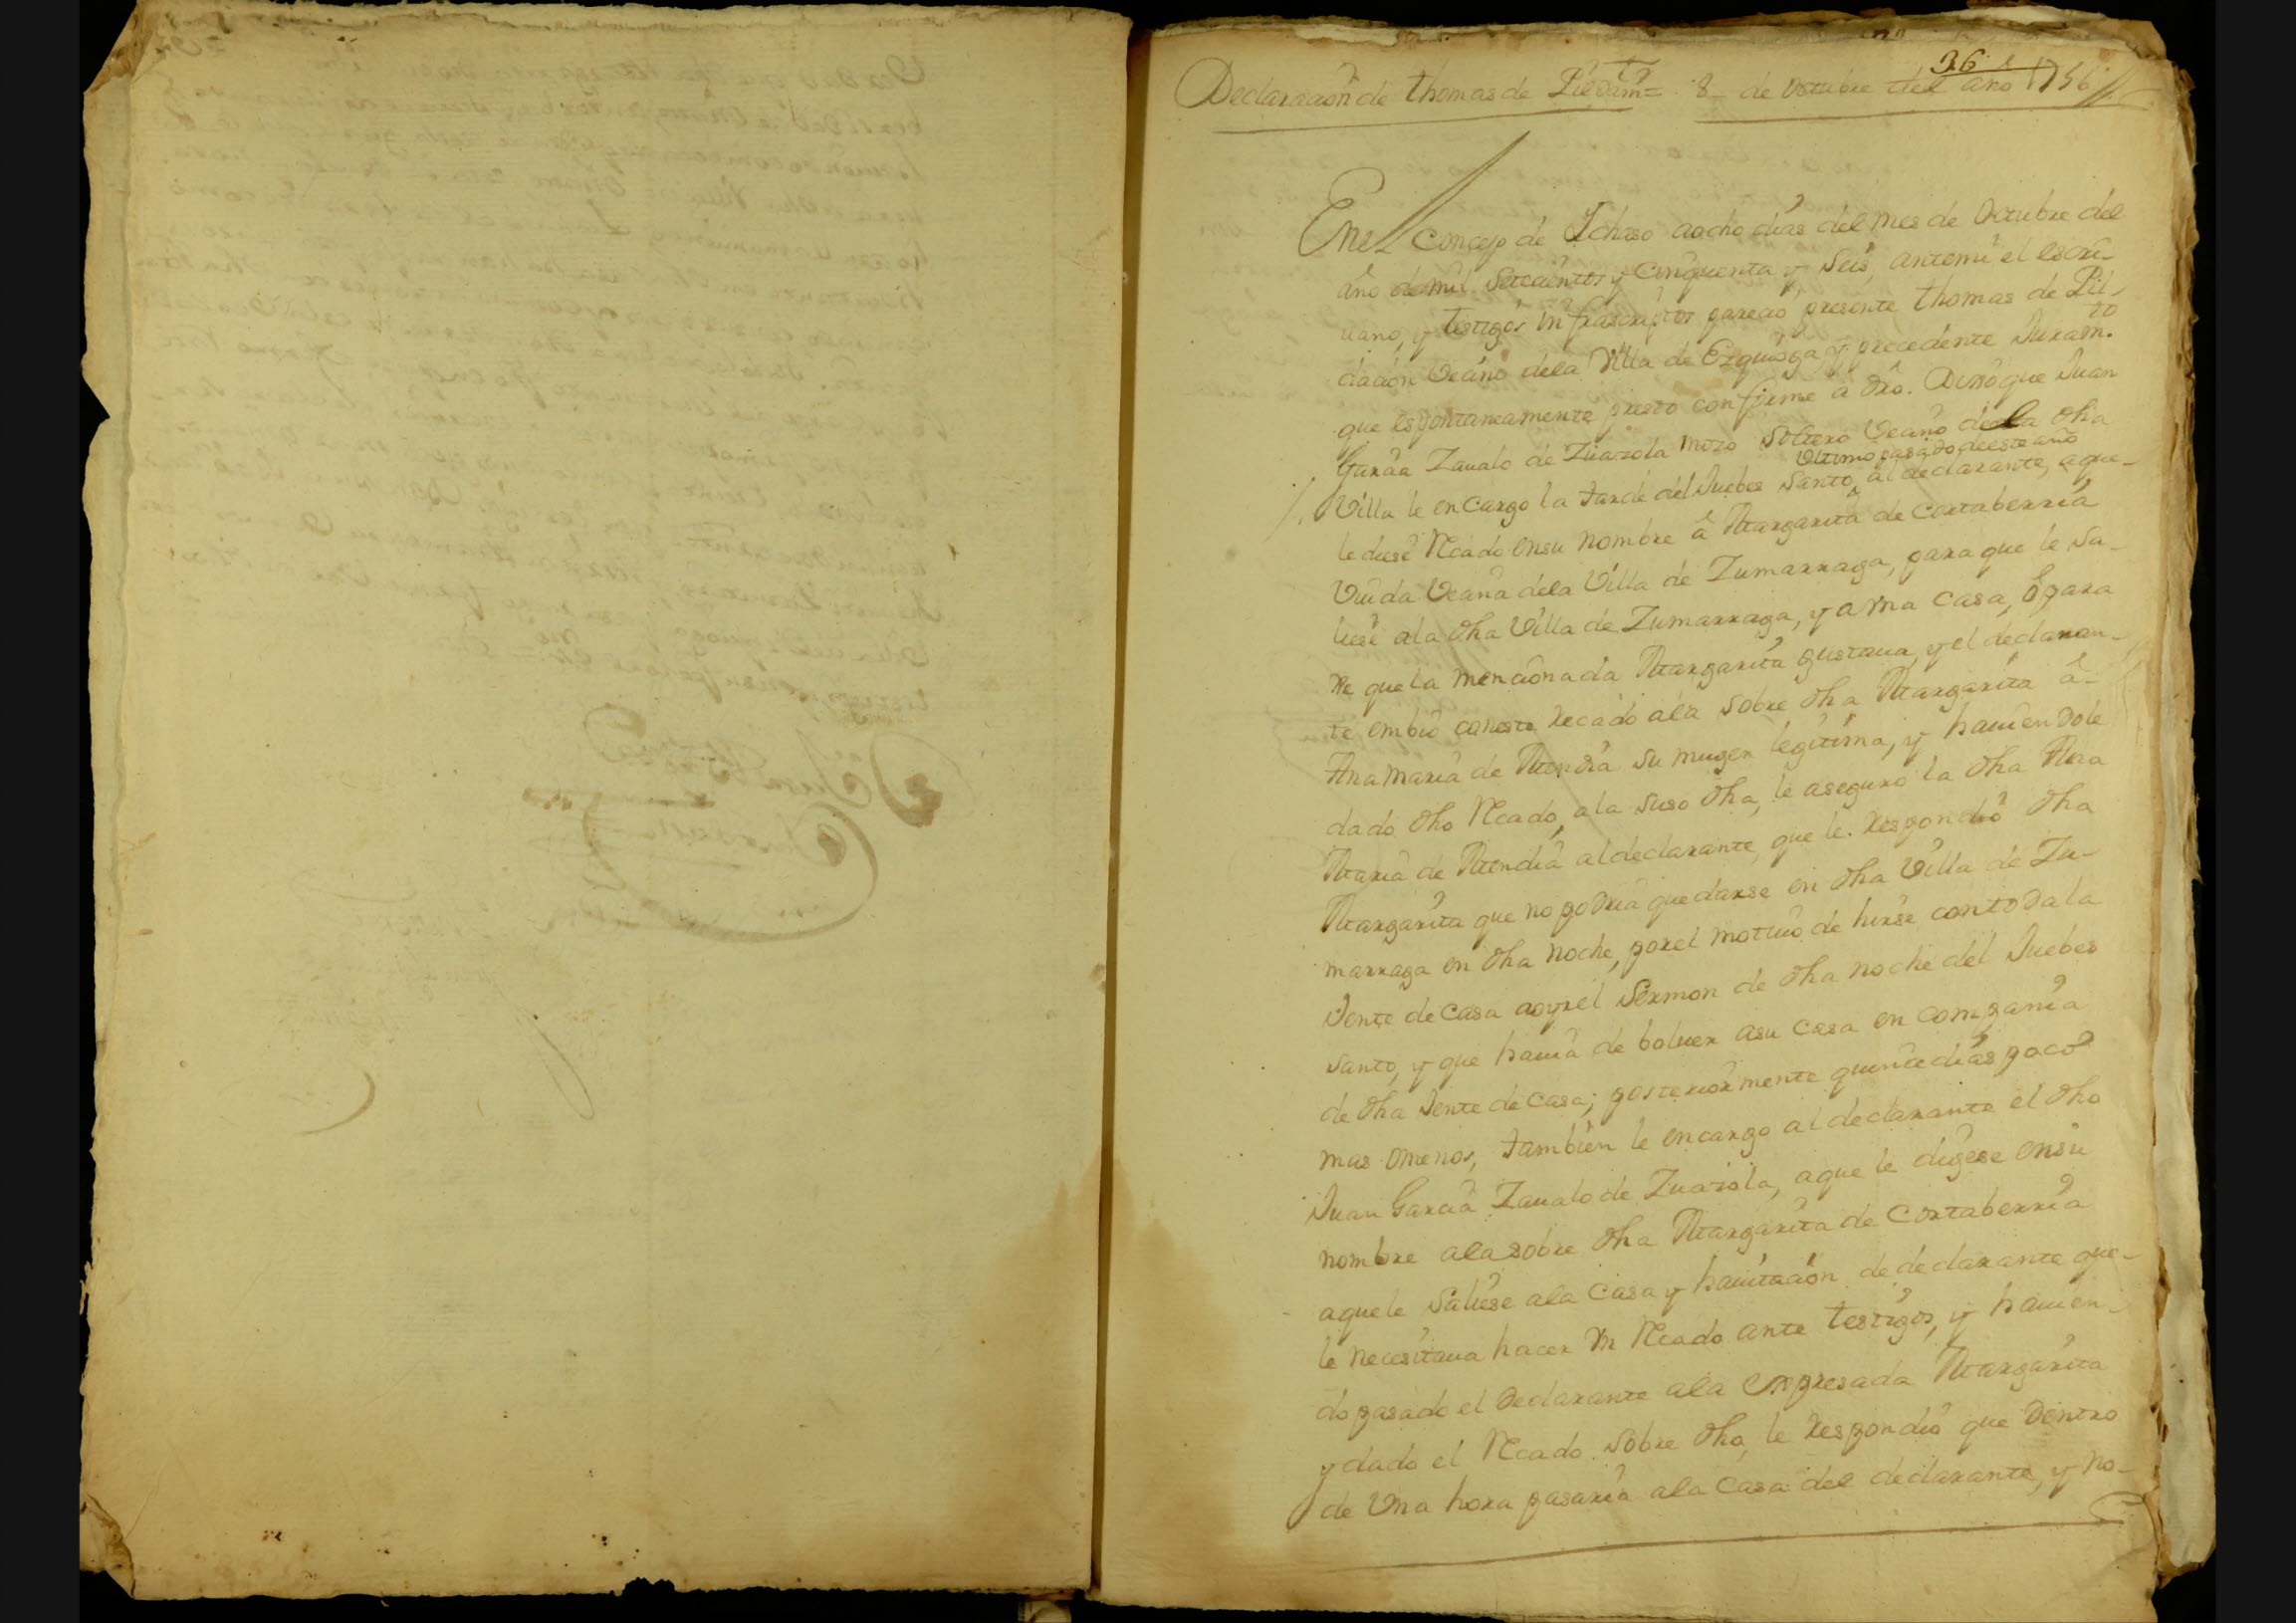 36
Declaraçion de thomas de 8 de octubre del año 1756
En el Conçejo de Ichaso aocho dias del mes de Octubre del
año de mil Seteçientos y Cinquenta y Seis, antemi el escri-
uano, y testigos infrascriptos pareçio presente thomas de Pil-
daçion Veçino dela Villa de Ezquioga y preçedente Juram.to
que espontaneamente presto conforme a dro. Dixo que Juan
Garçia Zaualo de Zuazola mozo soltero Veçino de la dha
Villa le encargo la tarde del Juebes Santo ultimo pasado de este año al declarante, aque-
le diese Rcado ensu nombre â Margarita de Cortaberria
Viuda Veçina dela Villa de Zumarraga, para que le sa-
liese ala dha Villa de Zumarraga, y a vna casa, ô para
que la mençionada Margarita gustaua, y el declaran-
te embio coneste recado ala sobre dha Margarita â-
Ana Maria de Mendia su muger legitima, y hauiendole
dado dho Rcado, ala suso dha, le aseguro la dha Ana
Maria de Mendia aldeclarante, que le respondiô dha
Margarita que no podria quedarse en dha Villa de Zu-
marraga en dha noche, porel motiuo de hirse contoda la
Jente de Casa aoyr el Sermon de dha noche del Juebes
santo, y que hauia de boluer asu casa en compania
de dha Jente de casa; posteriormente quinçe dias poco
mas omenos, tambien le encargo al declarante el dho
Juan Garçia Zaualo de Zuazola, aque le dijese ensu
nombre ala sobre dha Margarita de Cortaberria
aquele saliese ala Casa y hauitaçion de declarante que-
le neçesitaua haçer vn Rcado ante testigos, y hauien-
do pasado el declarante ala expresada Margarita
y dado el Rcado sobre dho, le respondio que dentro
de Vna hora pasaria ala Casa del declarante, y no-